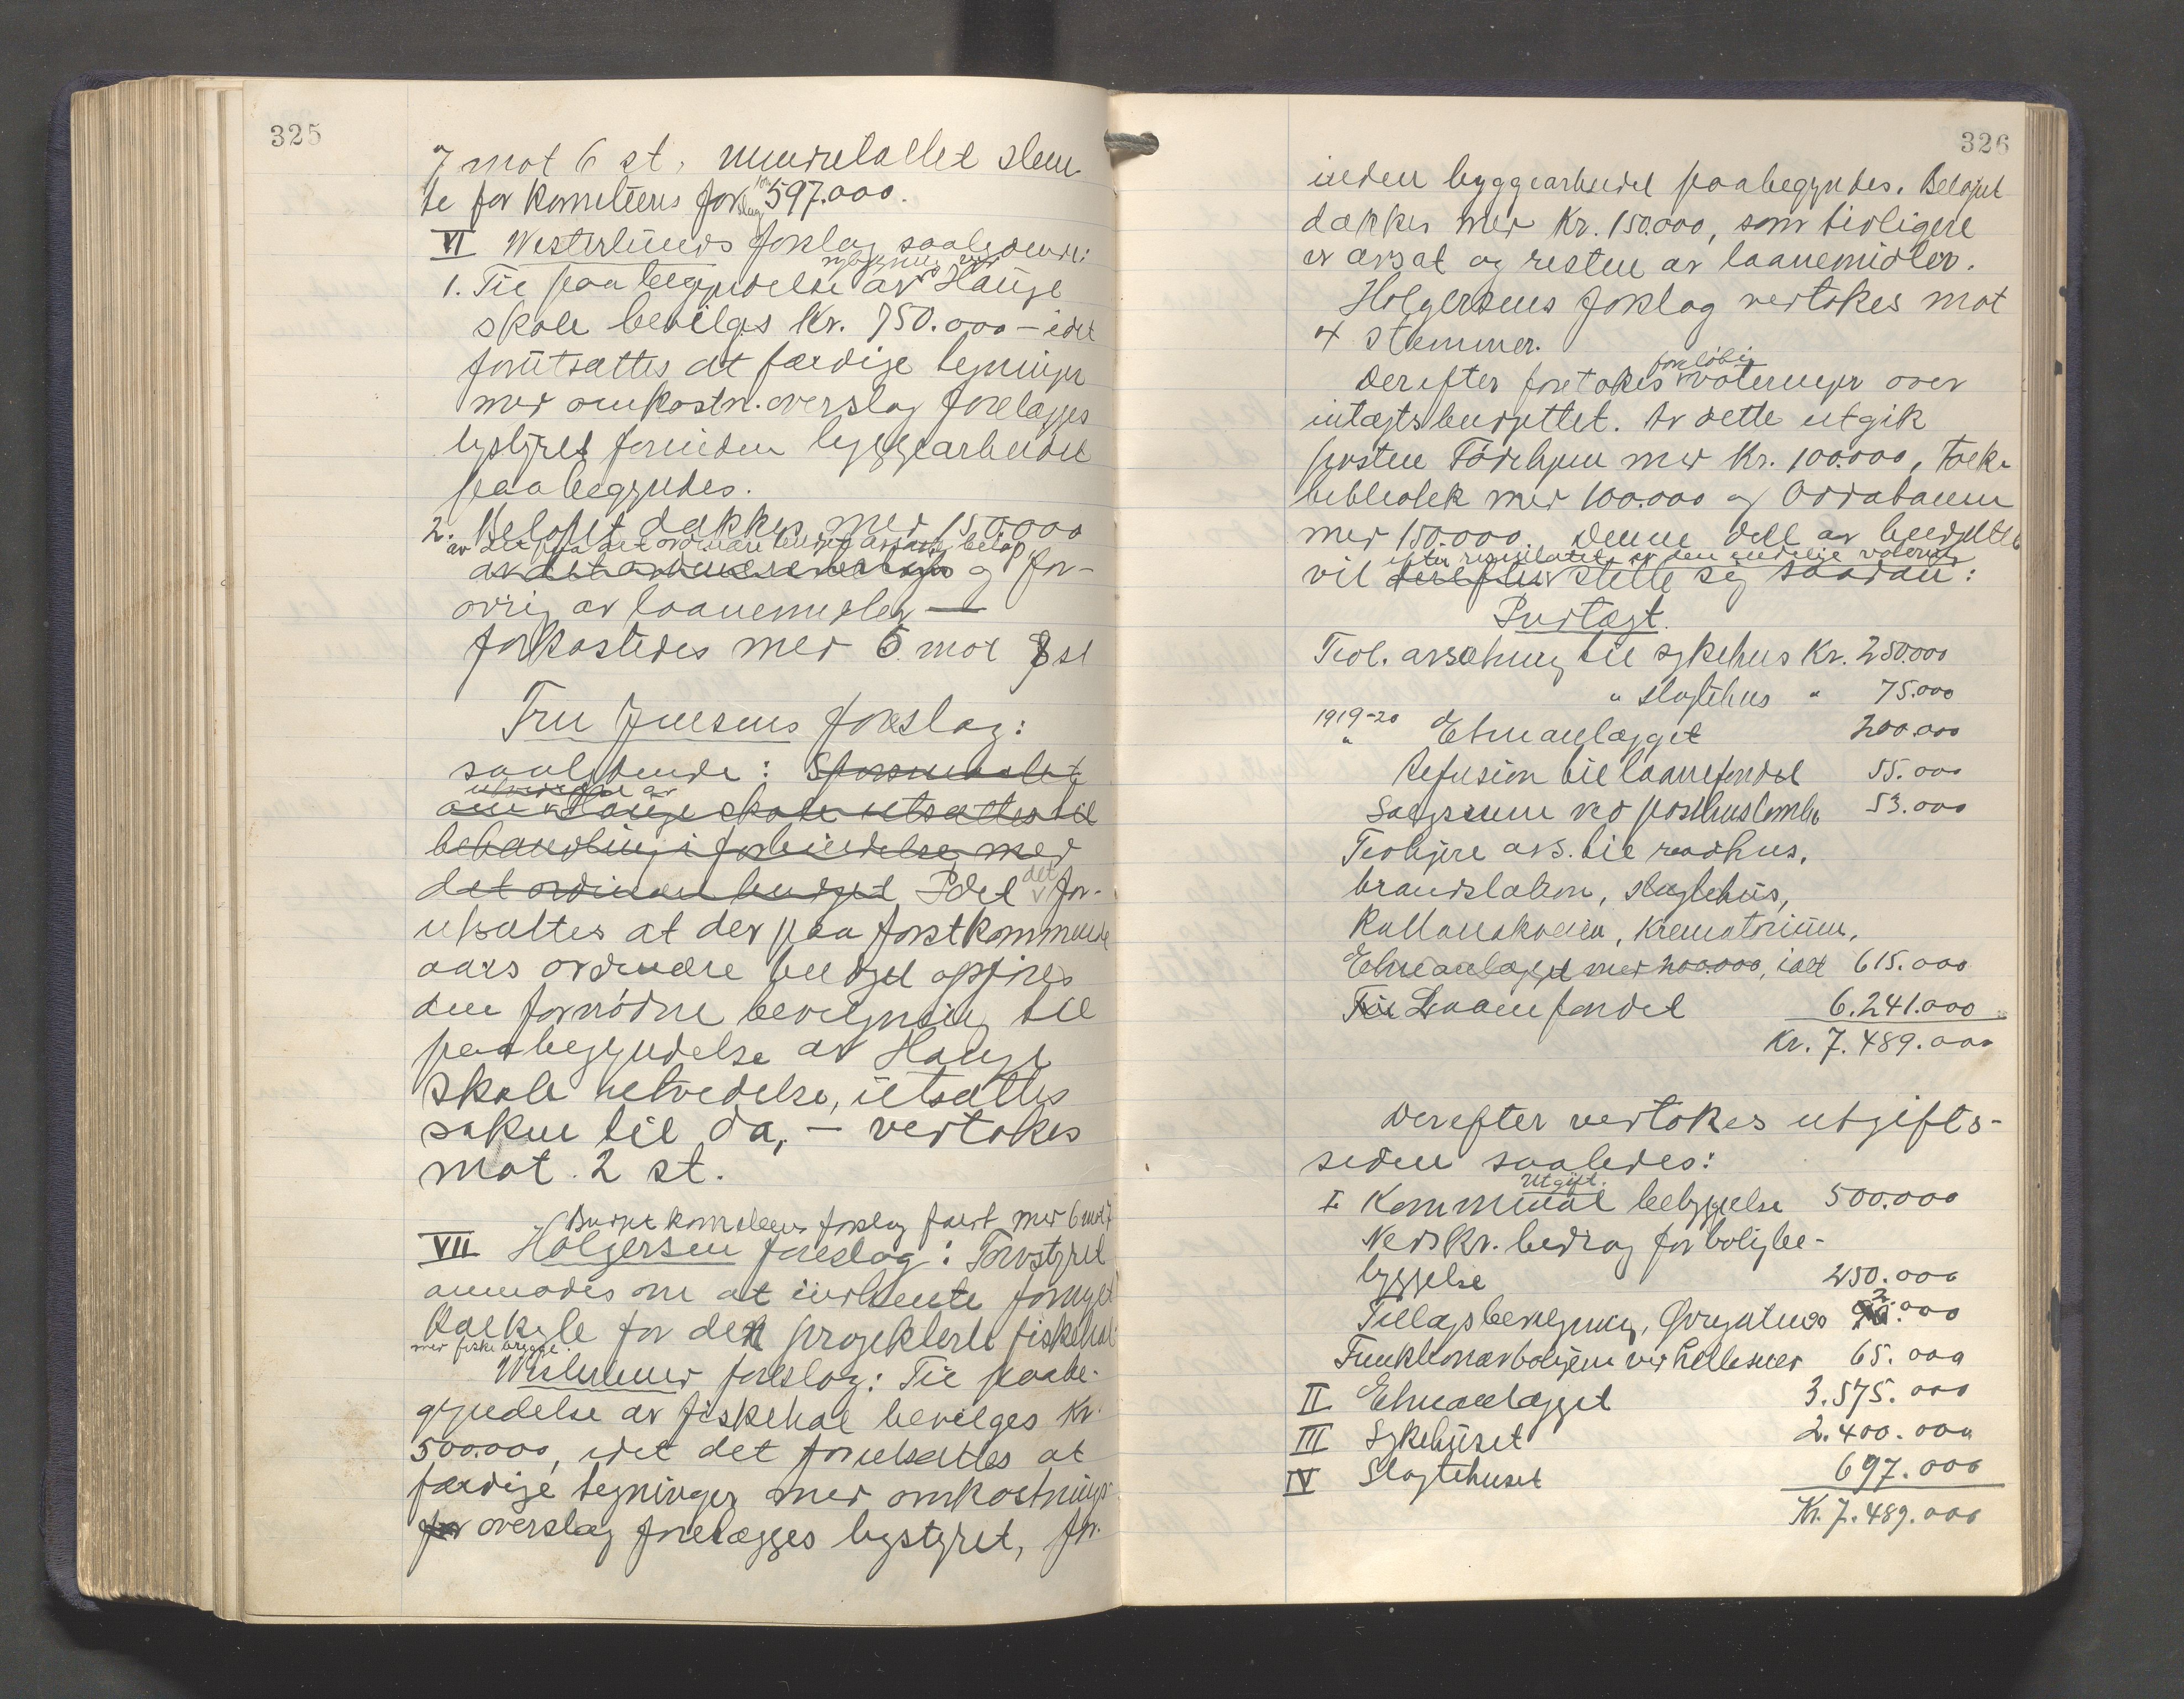 325
7 mot 6 st, mindretallet stem-
te for komiteens forslag kr 597.000.
VI Westerlunds forslag saalydende:
1. Til paabegyndelse av nybygning ved Hauge
skole bevilges kr. 750.000 – idet
forutsættes at færdige tegninger
med omkostn.overslag forelægges
bystyret forinden byggearbeidet
paabegyndes.
2. Beløpet dækkes med 150.000
av det paa det ordinære budget avsatte beløp
og for-
øvrig av laanemidler —
forkastedes med 5 mot 8 st
Fru Jensens forslag:
saalydende: Spørsmaalet
om utvidelse av Hauge skole utsættes til
behandling i forbindelse med
det ordinære budget Idet det for-
utsættes at der paa førstkommende
aars ordinære budget opføres
den fornødne bevilgning til
paabegyndelse av Hauge
skole utvidelse, utsættes
saken til da, – vedtokes
mot 2 st.
Budgetkomiteens forslag faldt med 6 mot 7
VII Holgersen foreslog: Torvstyret
anmodes om at indhente fornyet
kalkyle for den projekterte fiskehal
med fiskebrygge.
Westerlund foreslog: Til paabe-
gyndelse av fiskehal bevilges kr.
500.000, idet det forutsættes at
færdige tegninger med omkostnings-
overslag forelægges bystyret, for-
326
inden byggearbeidet paabegyndes. Beløpet
dækkes med Kr. 150.000, som tidligere
er avsat og resten av laanemidler.
Holgersens forslag vedtokes mot
4 stemmer.
Derefter foretokes foreløbig voteringer over
indtægtsbudgettet. Av dette utgik
posten Fødehjem med Kr. 100.000, Folke-
bibliotek med 100.000 og Oddabanen
med 150.000. Denne dell av budgettet
vil derefter efter resultatet av den endelige votering stille sig saadan:
Indtægt.
Tidl. avsætning til sykehus Kr. 250.000
" slagtehus " 75.000
1919-20 " Elveanlægget 200.000
Refusion til laanefondet 55.000
Salgssum ved posthustomten 53.000
Tidligere avs. til raadhus,
brandstation, slagtehus,
Kallanakveien, krematorium,
Elveanlægget med 200.000, ialt 615.000
Laanefondet 6.241.000
Kr. 7.489.000
Derefter vedtokes utgifts-
siden saaledes:
Utgift.
I Kommunal bebyggelse 500.000
Nedskr. bidrag for boligbe-
byggelse 250.000
Tillægsbevilgning, 2.000
Funktionærboligene ved 65.000
II Elveanlægget 3.575.000
III Sykehuset 2.400.000
IV Slagtehuset 697.000
Kr. 7.489.000